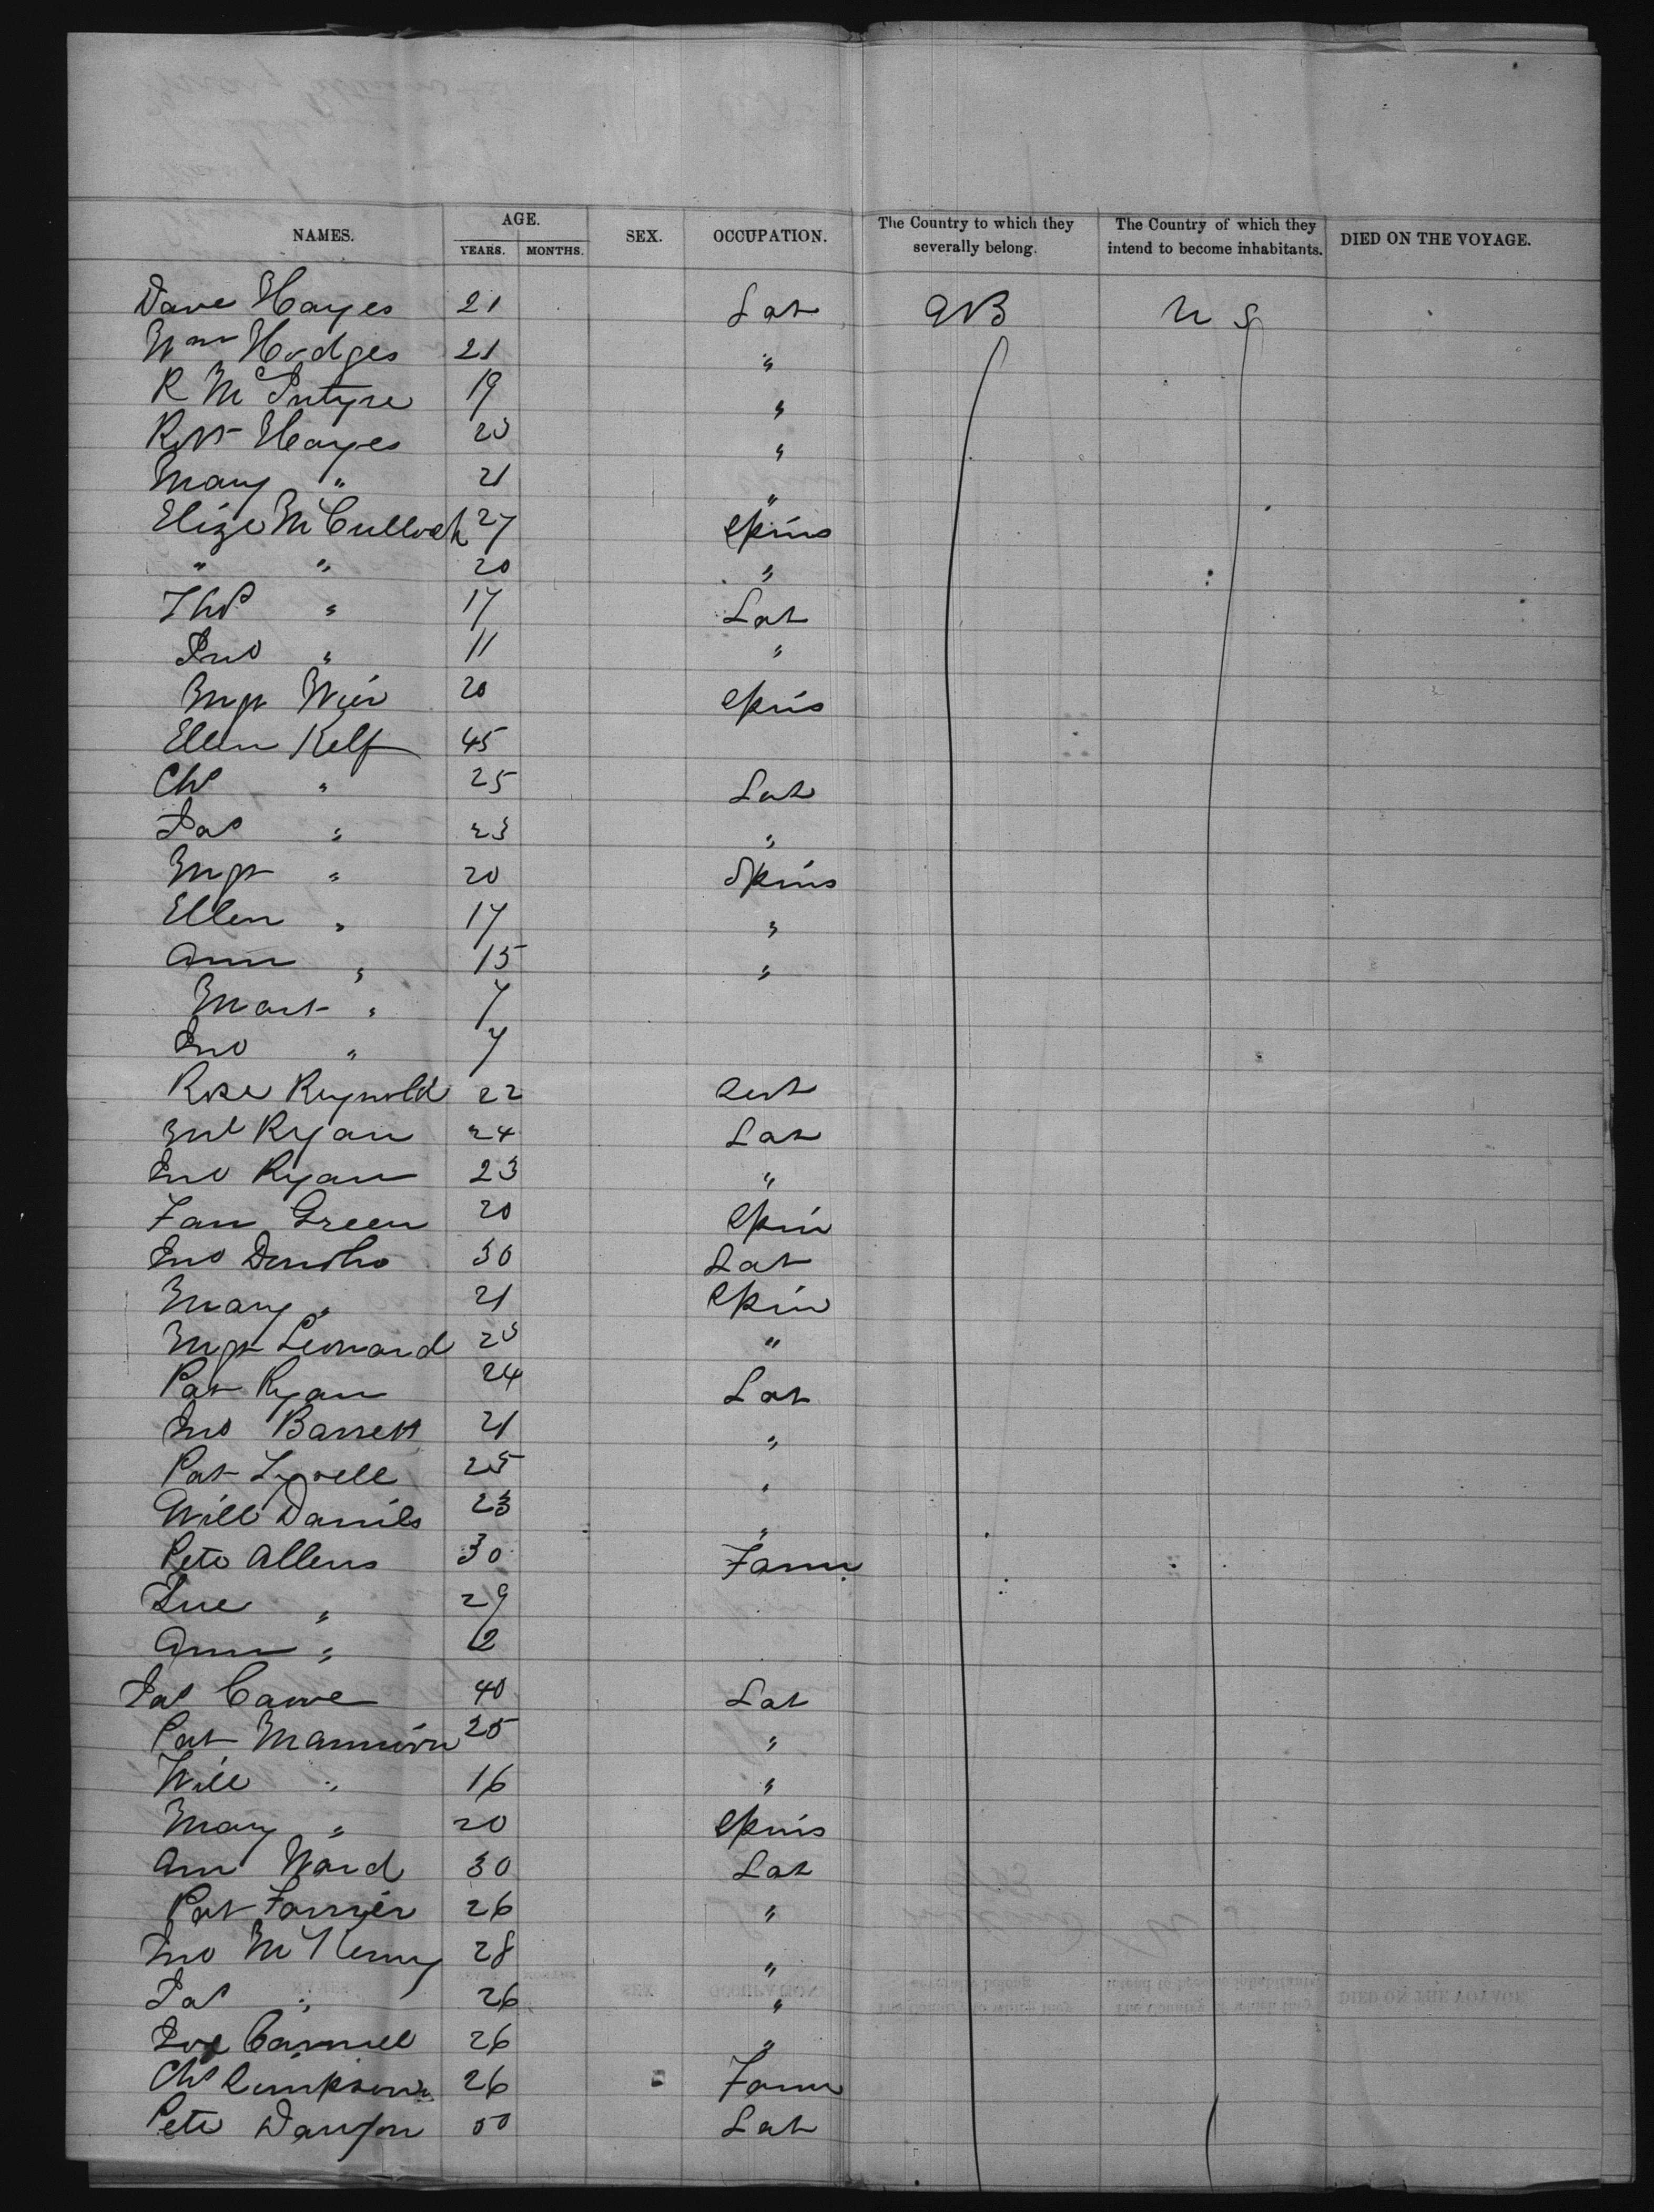 NAMES. AGE. YEARS. MONTHS. SEX. OCCUPATION. The Country to which they severally belong. The Country of which they intend to become inhabitants. DIED ON THE VOYAGE.
Dave Hayes 21 Lab GB U S
Wm Hodges 21 "
R McIntyre 19 "
Robt Hayes 23 "
Mary " 21 "
Eliza McCulloch 27 Spins
" " 20 "
Thos " 17 Lab
Jno " 11 "
Mgt Weir 20 Spins
Ellen Kelf 45
Chs " 25 Lab
Jas " 23 "
Mgt " 20 Spins
Ellen " 17 "
Ann " 15 "
Mart " 7
Jno " 7
Rose Reynold 22 Servt
Ml Ryan 24 Lab
Jno Ryan 23 "
Fan Green 20 Spin
Jno 30 Lab
Mary " 21 Spin
Mgt Leonard 23 "
Pat Ryan 24 Lab
Jno Barrett 21 "
Pat 25 "
Will Daniels 23 "
Pete Allens 30 Farm
" 29
Ann " 2
Jas 40 Lab
Pat Mannion 25 "
Will " 16 "
Mary " 20 Spins
Ann Ward 30 Lab
Pat 26 "
Jno McKenny 28 "
Jas " 26 "
Jos 26 "
Chs Simpson 26 Farm
Pete 50 Lab